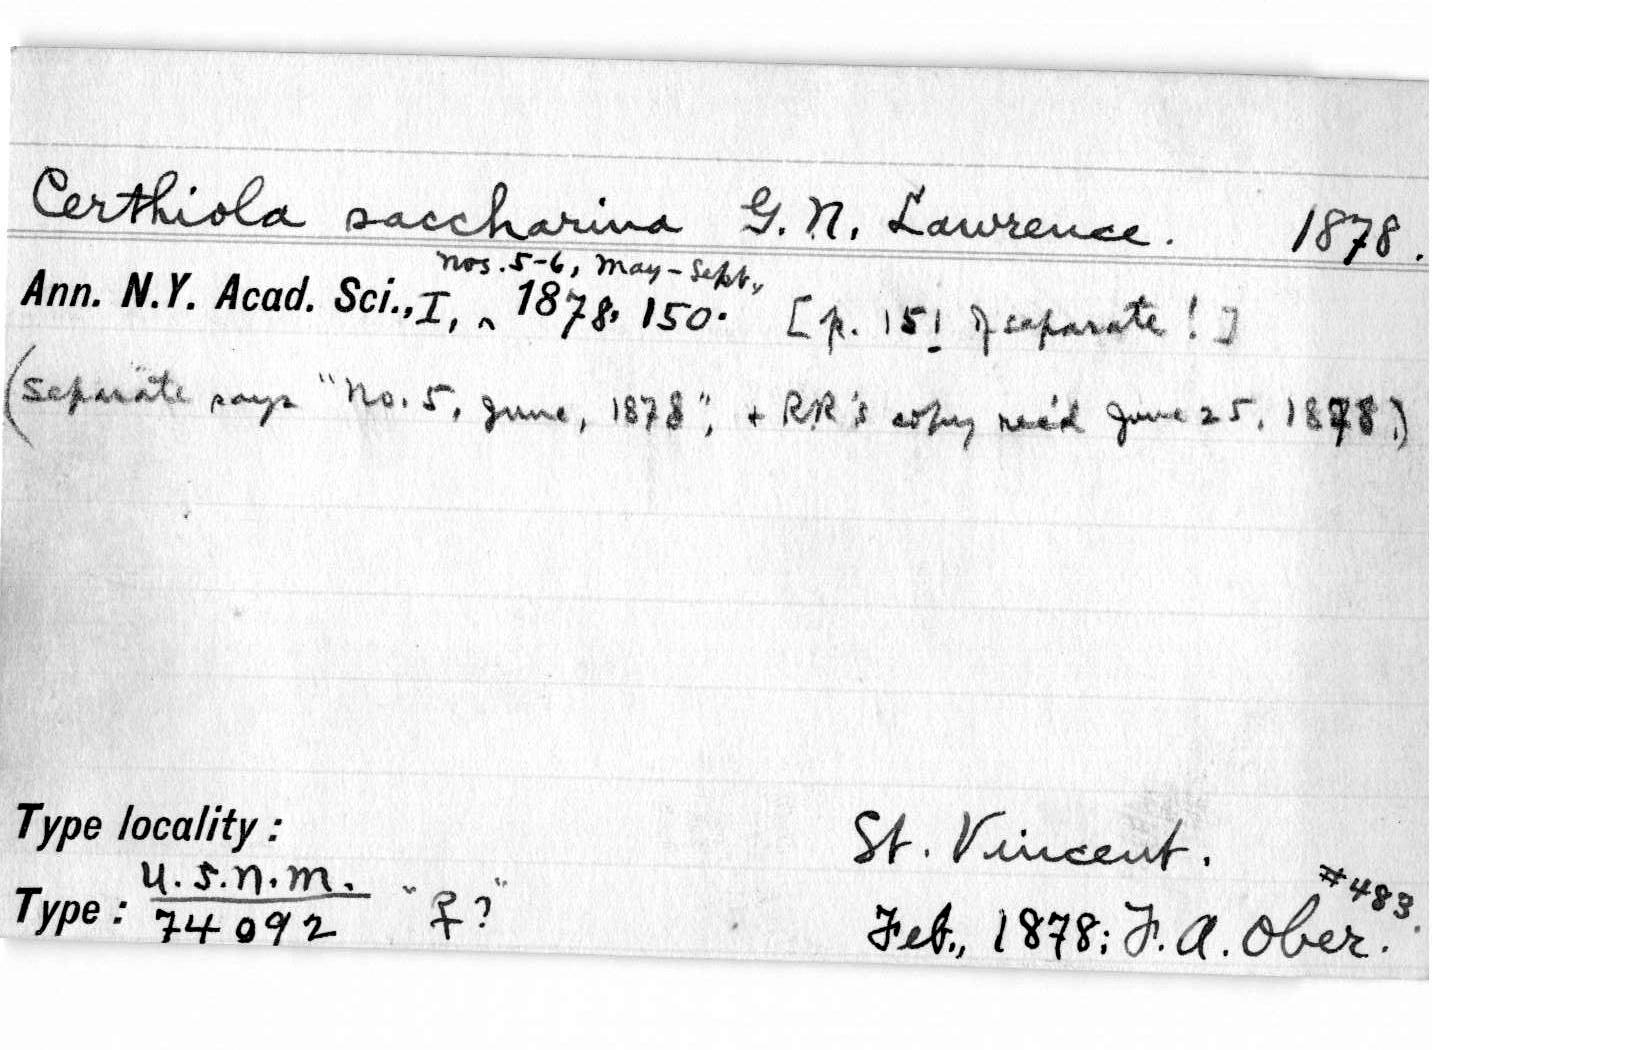 Certhiola saccharina G. N. Lawrence. 1878.
nos. 5-6, May-Sept.,
Ann. N.Y. Acad. Sci., I, ^ 1878, 150. [p. 151 of separate!]
(Separate says "No. 5, June, 1878", + RR's copy rec'd June 25, 1878.)
Type locality: St. Vincent.
Type: U.S.N.M. 74092 "♀?" #483
Feb., 1878; F. A. Ober.